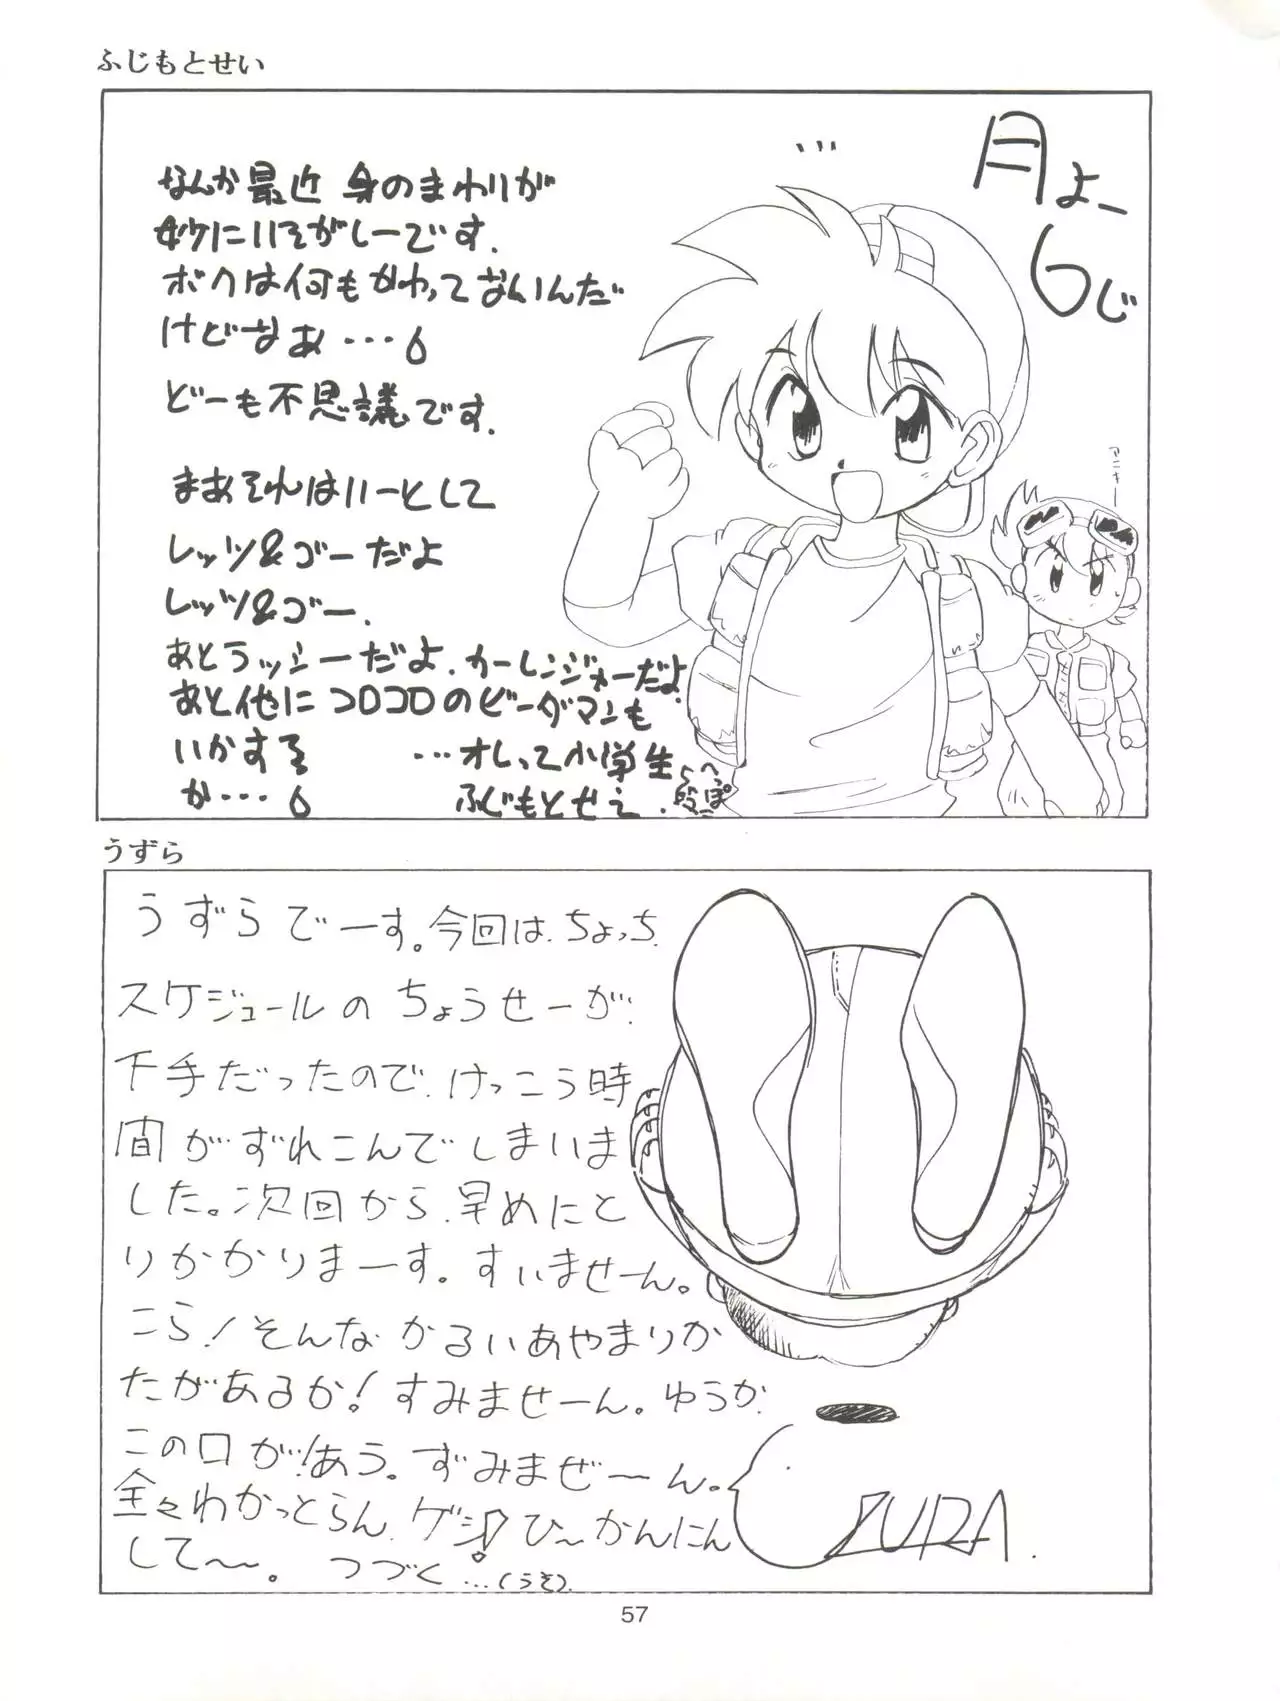 ふじもとせい
月よー
6じ
なんか最近 身のまわりが
妙にいそがしーです.
ボクは何もかわってないんだ
けどなぁ・・・
どーも不思議です.
まあそれはいーとして
レッツ&ゴーだよ
レッツ&ゴー.
あとラッシーだよ.カーレンジャーだよ
あと他にコロコロのビーダマンも
いかすな
か・・・
・・・オレって小学生
ふじもとせえ.
アニキー
うずら
うずらでーす。今回は.ちょっち
スケジュールのちょうせーが
下手だったので.けっこう時
間がずれこんでしまいま
した。次回から.早めにと
りかかりまーす。すいませーん。
こら!そんなかるいあやまりか
たがあるか!すみませーん。ゆうか.
この口が!あう。ずみまぜ〜ん。
全々わかっとらん.ゲシ!ひ〜かんにん
して〜〜。 つづく...(うそ).
ZURA.
57